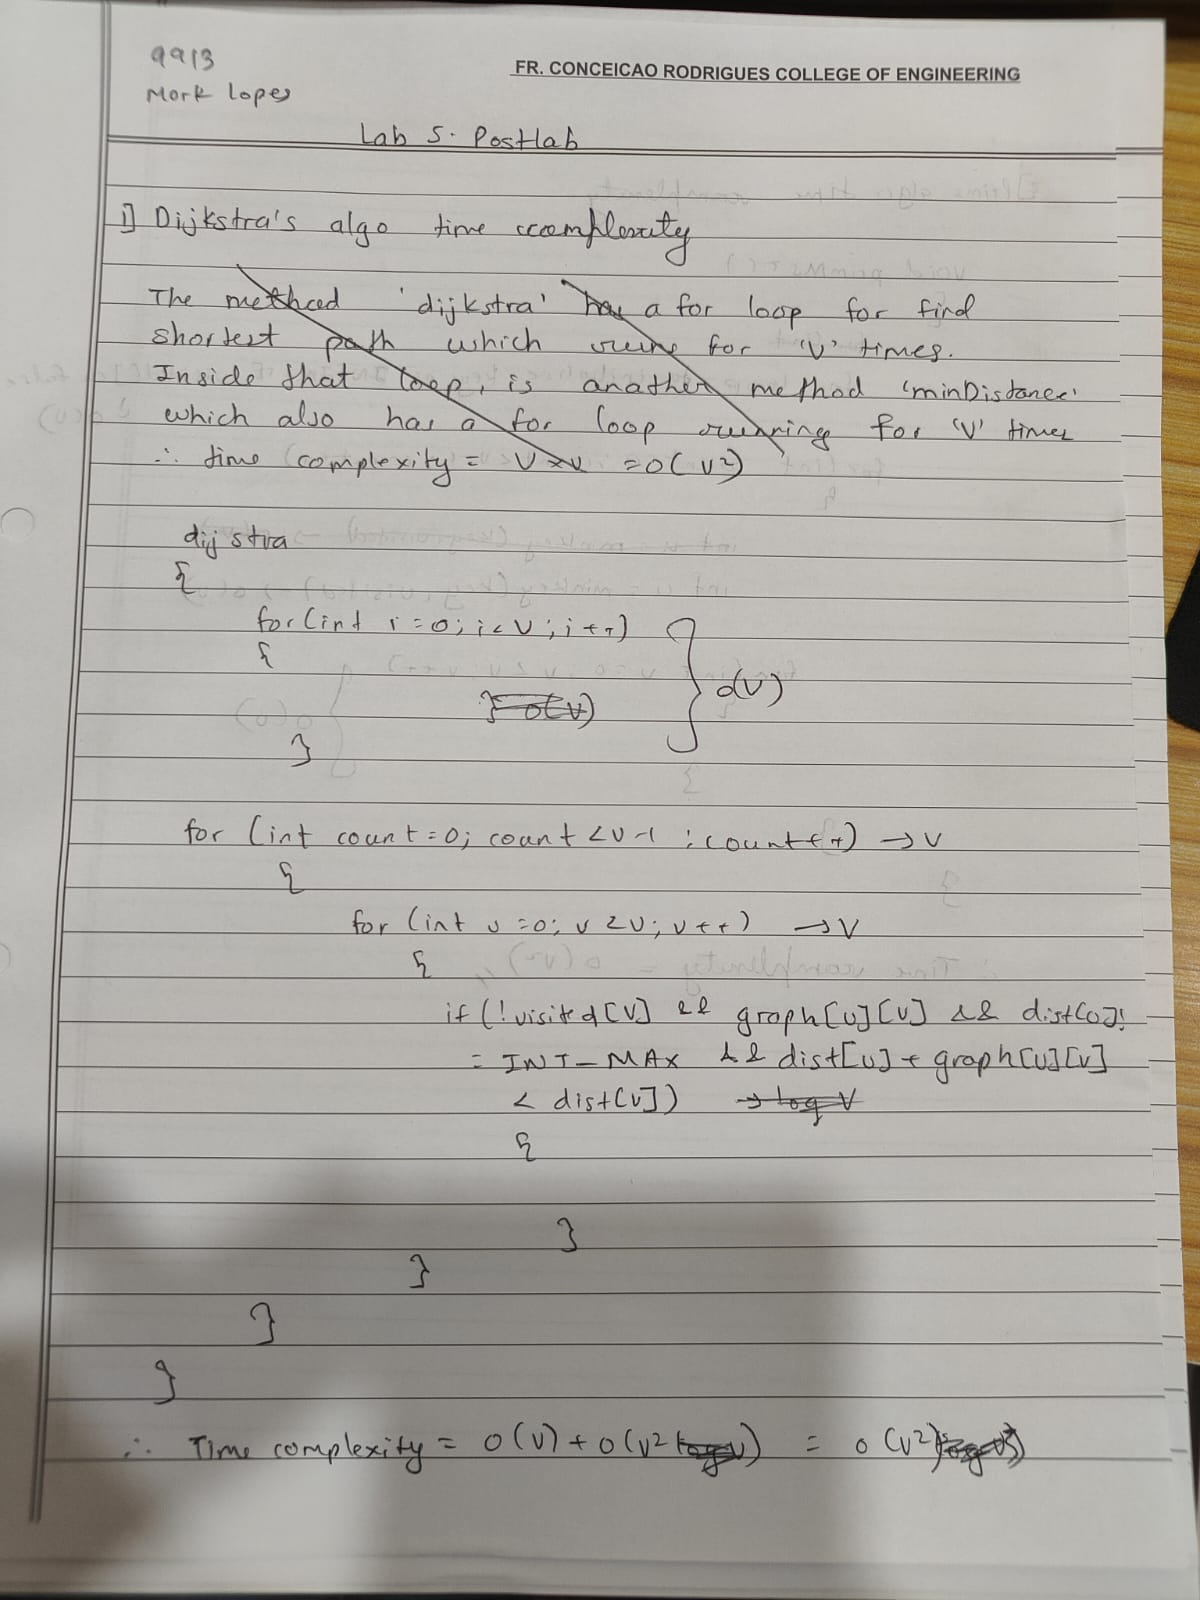 9913
Mark Lopes
FR. CONCEICAO RODRIGUES COLLEGE OF ENGINEERING
Lab 5. Postlab
1] Dijkstra's algo time complexity
The method 'dijkstra' has a for loop for find
shortest path which runs for 'V' times.
Inside that loop, is another method 'minDistance'
which also has a for loop running for 'V' times
∴ time complexity = V × V = O(V²)
dijstra
{
for(int i=0; i<V; i++)
{
} O(V)
} O(V)
}
for (int count=0; count <V-1 ; count++) → V
{
for (int v=0; v<V; v++) → V
{
if (!visited[v] && graph[u][v] && dist[u]!
= INT_MAX && dist[u] + graph[u][v]
< dist[v]) → log V
{
}
}
}
}
∴ Time complexity = O(V) + O(V² log V) = O(V²)